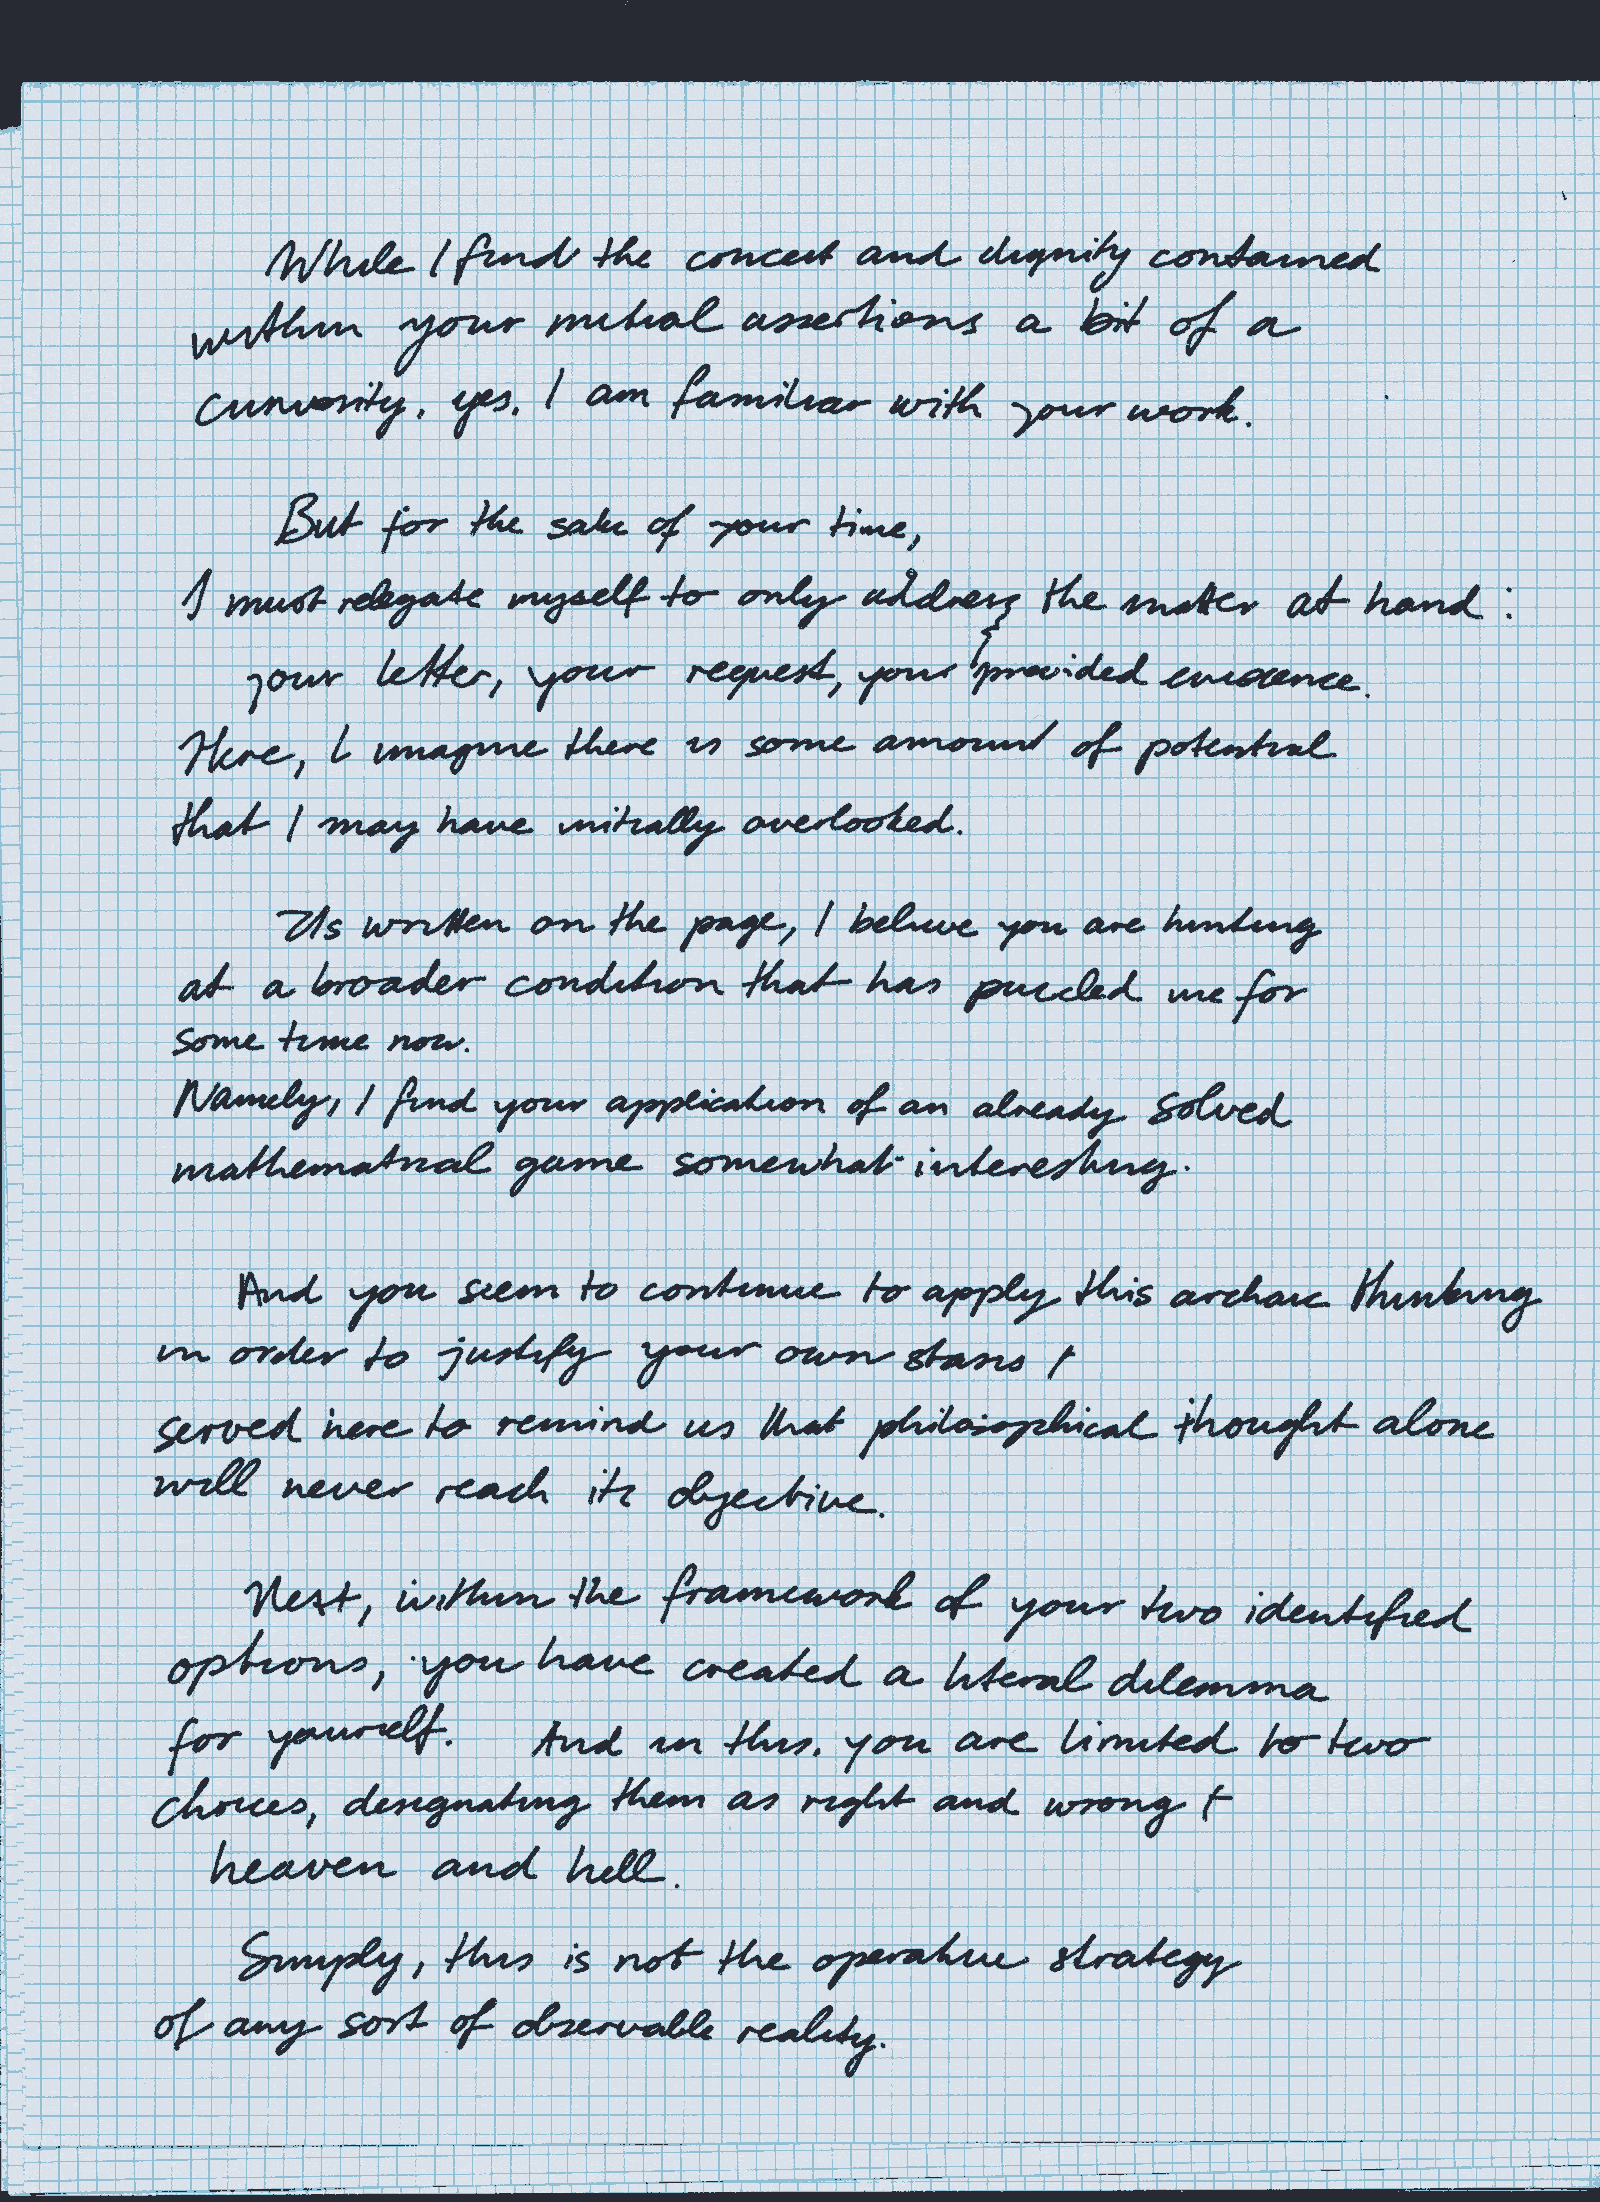 While I find the conceit and dignity contained
within your initial assertions a bit of a
curiosity, yes, I am familiar with your work.
But for the sake of your time,
I must relegate myself to only address the matter at hand :
your letter, your request, your provided evidence.
Here, I imagine there is some amount of potential
that I may have initially overlooked.
As written on the page, I believe you are hinting
at a broader condition that has puzzled me for
some time now.
Namely, I find your application of an already solved
mathematical game somewhat interesting.
And you seem to continue to apply this archaic thinking
in order to justify your own stasis +
served here to remind us that philosophical thought alone
will never reach its objective.
Next, within the framework of your two identified
options, you have created a literal dilemma
for yourself. And in this, you are limited to two
choices, designating them as right and wrong +
heaven and hell.
Simply, this is not the operative strategy
of any sort of observable reality.